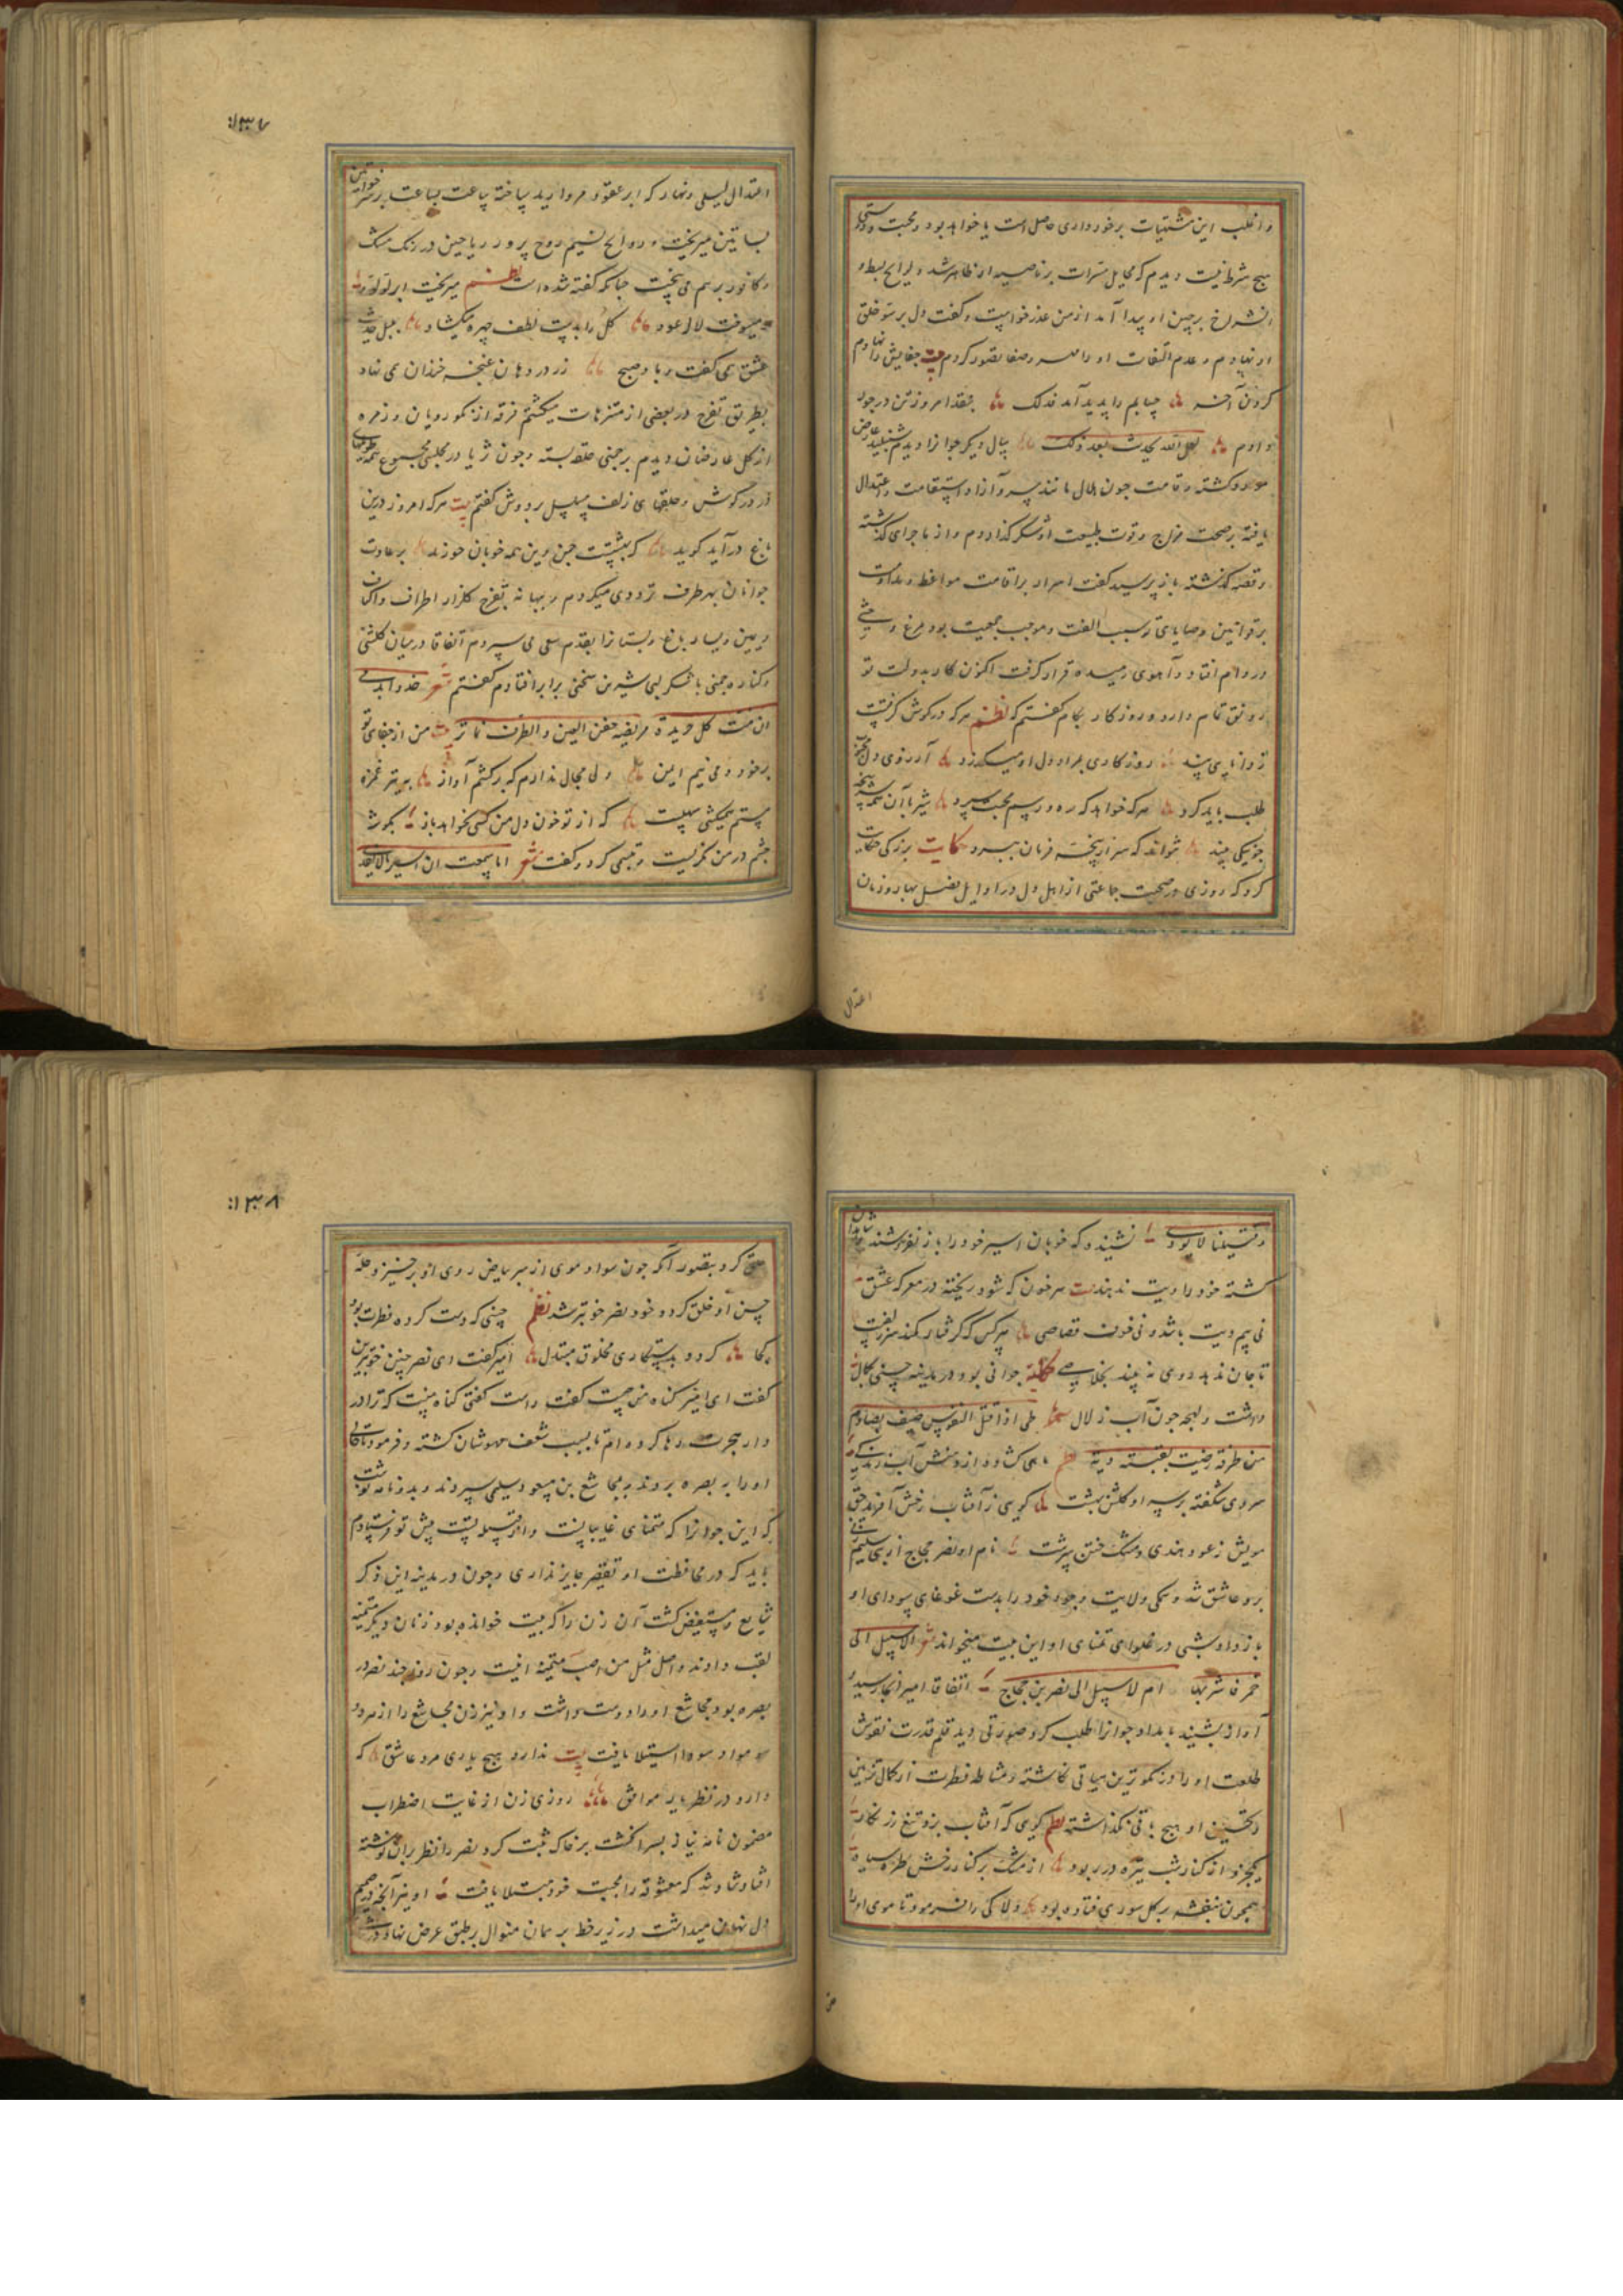 و اغلب این مشتهیات برخورداری حاصل است یا خواهد بود و محبت و دوستی
هیچ شرط نیست دیدم که مخایل مسرات بر ناصیه او ظاهر شد و لوایح بسط و
انشراح بر جبین او پیدا آمد از من عذر خواست و گفت دل بر سؤ خلق
او نهادم و عدم التفات او را صفا تصور کردم بیت جفایش را نهادم
کردن آخر حسابم را پدید آمد فذلک بنقد امروز تن در جور
دادم لعل الله یحدث بعد ذلک بسال دیگر جوانرا دیدم شنبلید عارض
گشته و قامت چون هلال مانند سرو آزاد و استقامت و اعتدال
یافته بر صحت مزاج و قوت طبیعت او شکر گذاردم و از ماجرای گذشته
و قصه گذشته باز پرسید گفت اصرار بر اقامت مواعظ و مداومت
بر قوانین وصایای تو سبب الفت و موجب جمعیت بود مرغ وحشی
در دام افتاد و آهوی رمیده قرار گرفت اکنون کار بدولت تو
رونق تمام دارد و روزگار بکام گفتم که نظم هر که در گوش گرفت
از دانا پی پند روزگاری بمراد دل او میگذرد آرزوی دل
طلب باید کرد هر که خواهد که ره و رسم محبت سپرد شیر با آن همه
چو یکی بیند نتواند که سر از پنجه فرمان ببرد حکایت بزرگی حکایت
کرد که روزی در صحبت جماعتی از اهل دل در اوایل فصل بهار و زمان
اعتدال
۱۳۷
اعتدال لیلی و نهار که ابر عقود مروارید ساخته ساعت بساعت بر سر خواتین
بساتین میریخت و روایح نسیم روح پرور ریاحین در رنک مشک
و کافور بر هم می بیخت چنانکه گفته شده است نظم میریخت ابر لؤلؤ
میسوخت لاله عود گل را بدست لطف چهره میکشاد بلبل حدیث
عشق همی گفت با صبح زر در دهان غنچه خندان همی نهاد
بطریق تفرج در بعضی از متنزهات میکشتم فرقه از نکو رویان و زمره
از گل عارضان دیدم بر چمنی حلقه بسته و چون ثریا در مجلسی مجموع همه
در گوش و حلقهای زلف مسلسل بر دوش گفتم بیت هر که امروز درین
باغ درآید گوید که بهشتست چمن وین همه خوبان حورند بر عادت
جوانان بهر طرف ترددی میکردم و ببهانه تفرج گلزار اطراف و اکناف
و یمین و یسار باغ و بستانرا بقدم سعی می سپردم اتفاقا در میان گلشنی
و کناره چمنی با شکر لبی شیرین سخنی برابر افتادم گفتم شعر
مریضه جفن العین و الطرف بیت من از جفای تو
بر خود و نیم ایمن ولی مجال ندارم که برکشم آواز بهر تیر غمزه
ستم میکشی سهلست که از تو خون دل من کسی نخواهد باز بگوشه
چشم در من نگریست و تبسمی کرد و گفت شعر اما سمعت ان اسیر
و قتیلنا لا یودی نشنیده که خوبان اسیر خود را باز نفروشند
کشته خود را دیت ندهند بیت هر خون که شود ریخته در معرکه عشق
نی بیم دیت باشد و نی خوف قصاصی هر کس که گرفتار کمند سر زلفست
تا جان ندهد روی نه بیند بخلاصی حکایة جوانی بود در مدینه حسنی بکمال
داشت و لهجه چون آب زلال
من طرفه رضیت بغیر دیه نظم
سروی شگفته بر سر او گلشن بهشت گویی ز آفتاب رخش آفرید حق
مویش ز عود هندی و مشک ختن سرشت نام او نصر حجاج از بنی سلیم زنی
برو عاشق شد و ملکی ولایت وجود خود را بدست غوغای سودای او
باز داد و شبی در غلوای تمنای او این بیت میخواند شعر الا سبیل الی
خمر فاشربها ام لا سبیل الی نصر بن حجاج اتفاقا امیر آنجا رسید
آواز بشنید بامداد جوانرا طلب کرد صورتی دید قلم قدرت نقوش
طلعت او را در نکوترین هیأتی نگاشته و مشاطه فطرت از کمال تزیین
و تحسین او هیچ باقی نگذاشته نظم گویی که آفتاب بزد تیغ زرنگار
یکجزو از کنار شب تیره در ربود از مشک بر کنار رخش طره سیاه
همچون بنفشه بر گل سوری فتاده بود دلاکی را فرمود تا موی او را
۱۳۸
حلق کرد بتصور آنکه چون سواد موی از سر بیاض روی او برخیزد حله
حسن او خلق گردد خود نصر خوبتر شد نظم حسنی که دست کرده فطرت بود
کجا گردد بدستکاری مخلوق مبتذل امیر گفت ای نصر چنین خوبترین
گفت ای امیر گناه من چیست گفت راست گفتی گناه منست که ترا در
دار هجرت رها کرده ام تا بسبب شعف مهوشان کشته و فرمود تا
او را به بصره بردند و بمجاشع بن مسعود سلمی سپردند و بدو نامه نوشت
که این جوانرا که متمنای غایباتست و از قبیله تست پیش تو فرستادم
باید که در محافظت او تقصیر جایز نداری و چون در مدینه این ذکر
شایع و مستفیض گشت آن زن را که بیت خوانده بود زنان دیگر متمنیه
لقب دادند و اصل مثل من اصب متمنیه اینست و چون روز چند نصر در
بصره بود مجاشع او را دوست داشت و او نیز زن مجاشع را از هر دو
سواد سودا استیلا یافت بیت ندارد هیچ یاری مرد عاشق که
دارد در نظر یار موافق روزی زن از غایت اضطراب
مضمون نامه نیاز بسر انگشت بر خاک ثبت کرد نصر را نظر بران نوشته
افتاد شاد شد که معشوقه را بمحبت خود مبتلا یافت او نیز آنچه در صمیم
دل نهان میداشت در زیر خط بر همان منوال بر طبق عرض نهاد